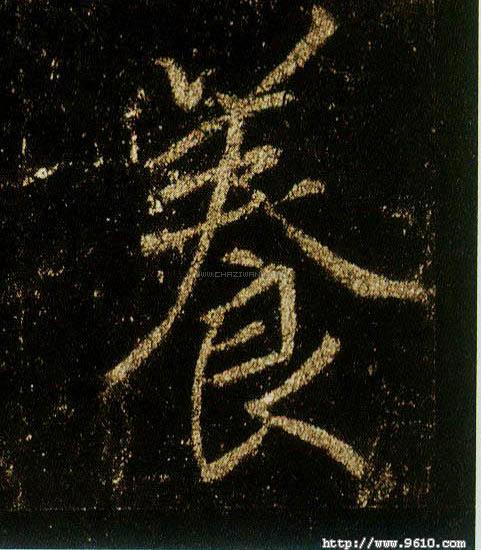 養
WWW.CHAZIWANG
http://www.9610.com